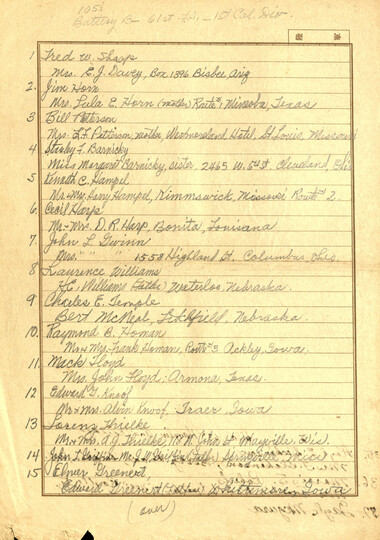 105
Battery B - 61st F.A. - 1st Cal. Div.
1 Fred W. Sharp
Mrs. E. J. Davey, Box 1396 Bisbee Ariz
2. Jim Horn
Mrs. Lula E. Horn (mother) Route 1, Texas
3 Bill Patterson
Mrs. L. F. Patterson, mother, Westmoreland Hotel, St Louis, Missouri
4 Stanley F. Barnicky
Miss Margaret Barnicky, sister, 2465 W. 5th St. Cleveland, Ohio
5 Kenneth C. Hampel
Mr & Mrs Harry Hampel, Kimmswick, Missouri Route 2
6. Cecil Harp
Mr & Mrs. D. R. Harp, Bonita, Louisiana
7. John L Gwinn
Mrs. " " " 1553 Highland St., Columbus, Ohio.
8 Laurence Williams
H.C. Williams (Father) Waterloo, Nebraska.
9 Charles E. Temple
Bert McNeal, Litchfield, Nebraska.
10. Raymond B. Homan
Mr & Mrs. Frank Homan, Route 3 Ackley, Iowa
11. Mack Floyd
Mrs. John Floyd; Armona, Texas.
12 Edward G. Knoof
Mr & Mrs. Alvin Knoof, Traer, Iowa
13 Lorenz Thielke
Mr & Mrs. A. G. Thielke, St Mayville, Wis.
14 John L.
15 Elmer Greenert,
Edward Greenert (Father) Whittemore, Iowa
(over)